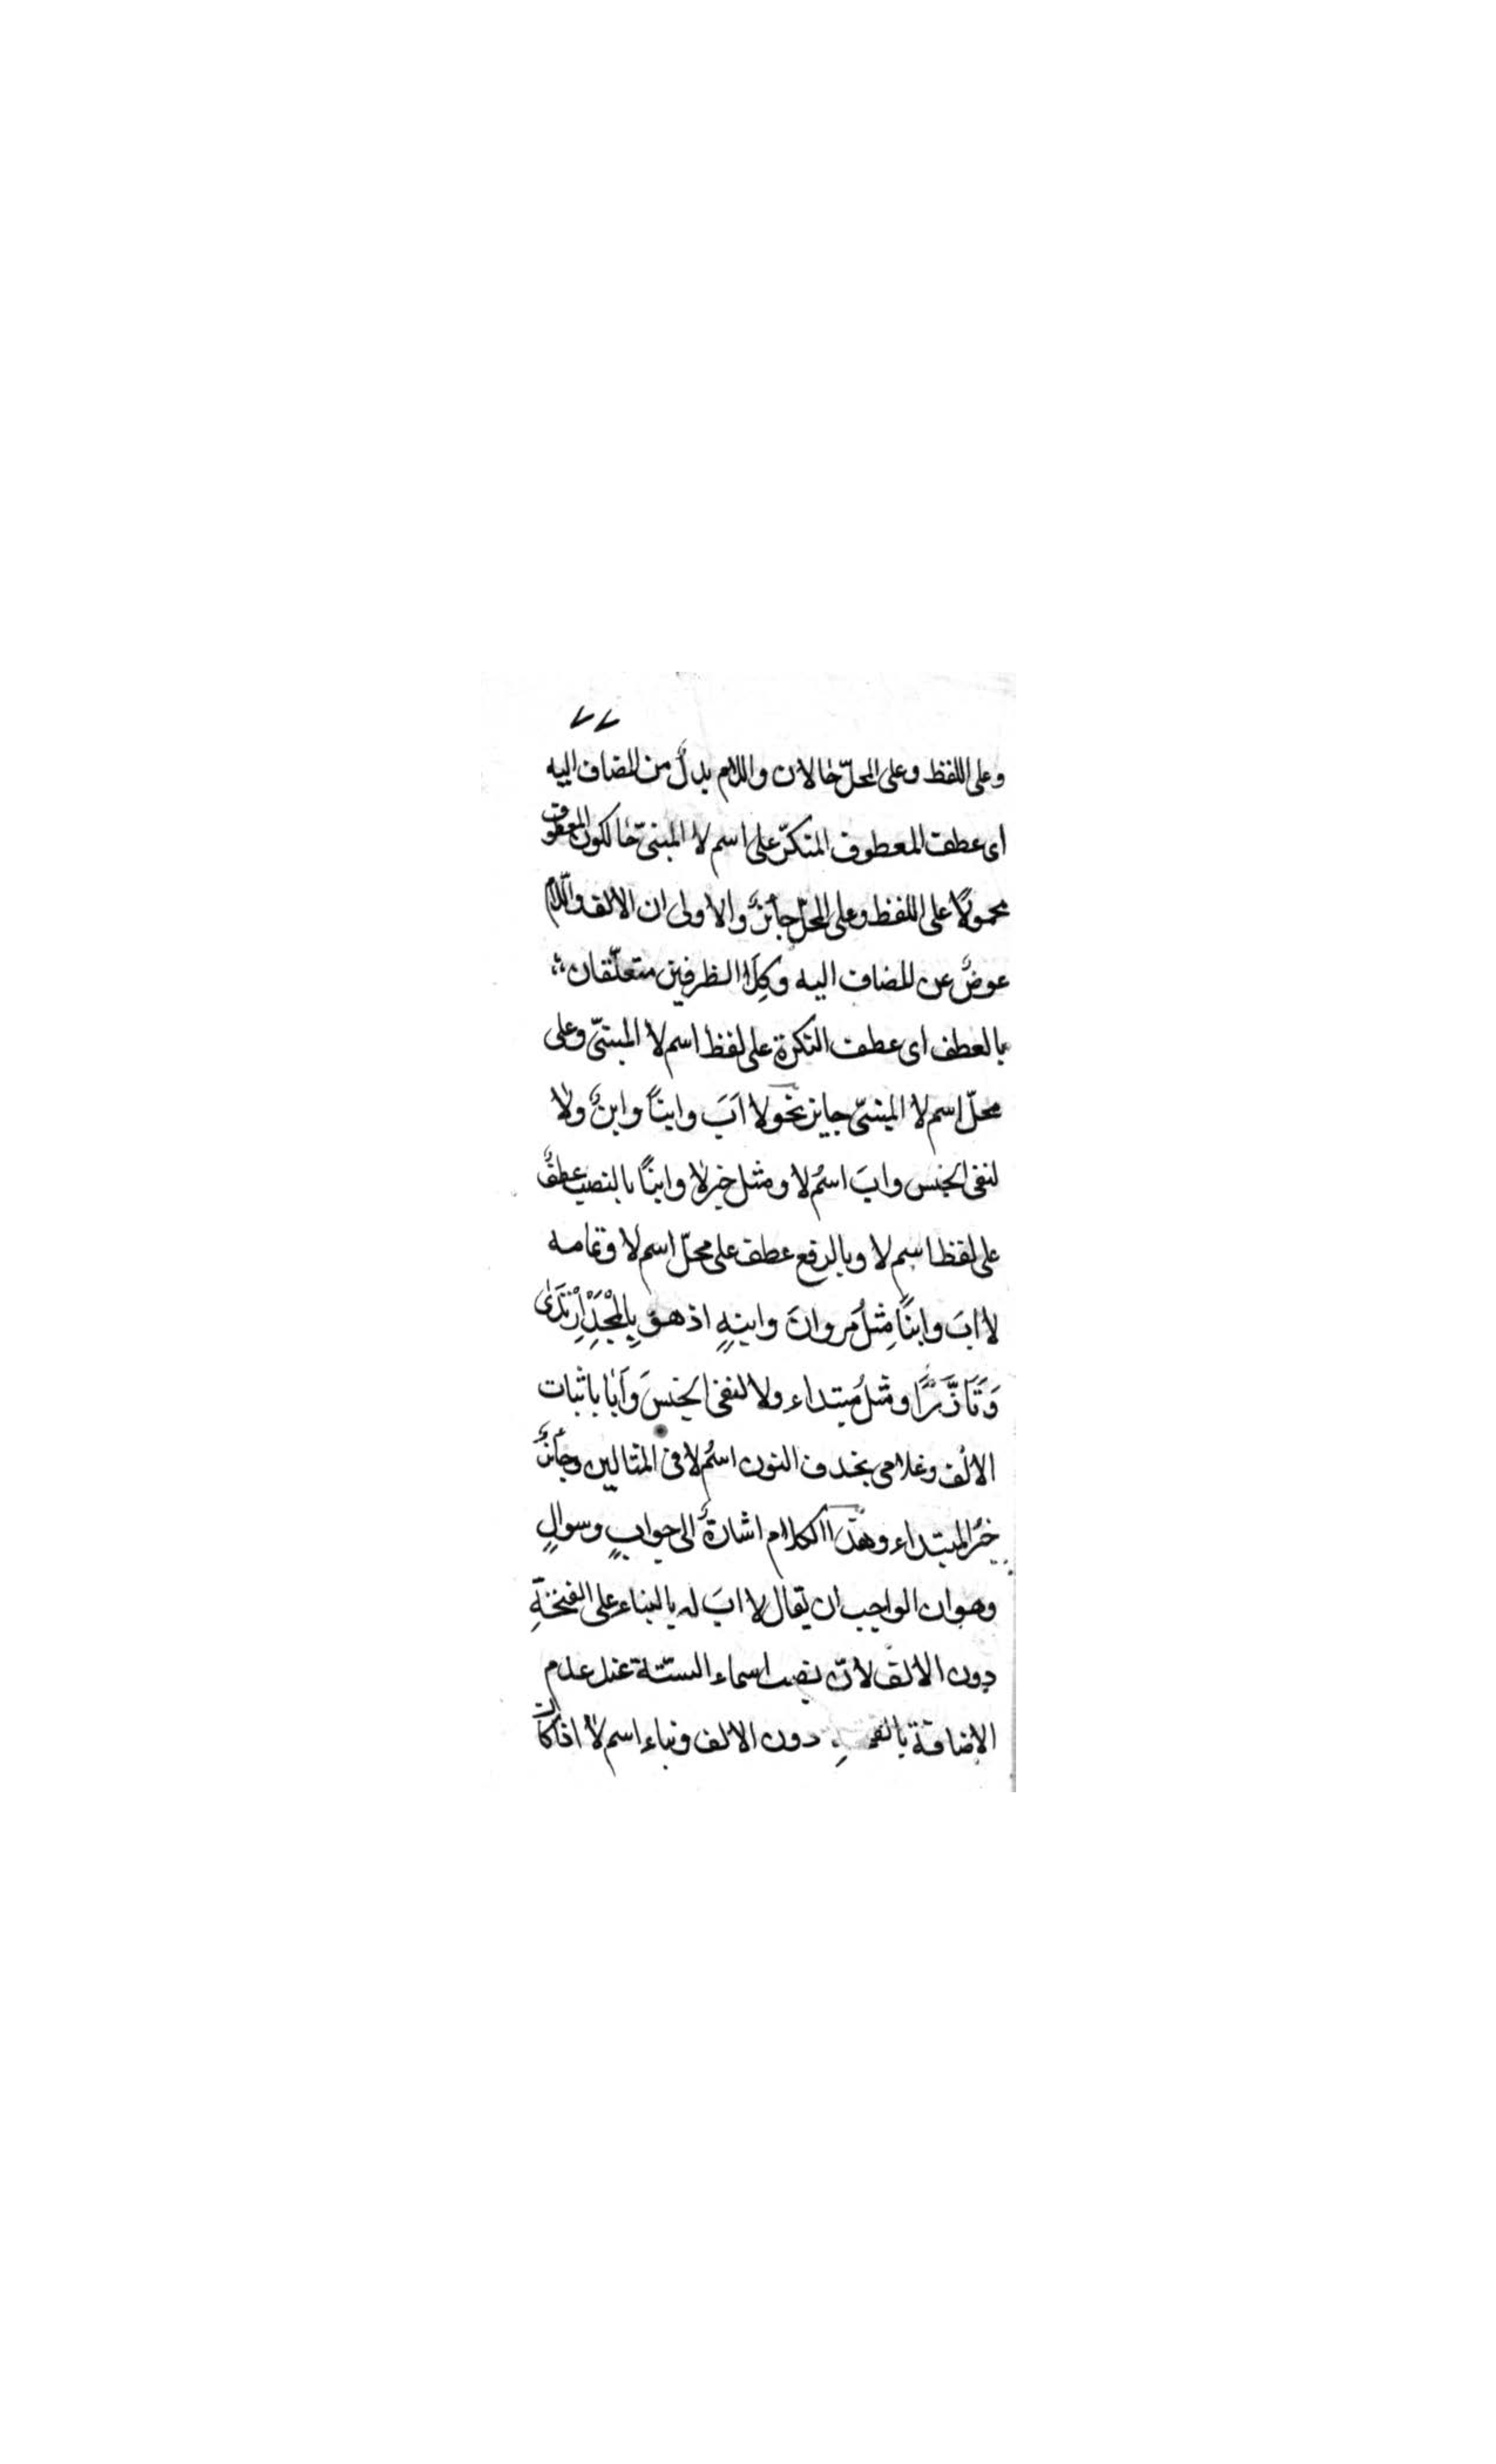 ٧٧
وعلى اللفظ وعلى المحلّ حالان واللام بدلٌ من المضاف اليه
اى عطف المعطوف المنكرّ على اسم لا المبنىّ حالكون المعطوف
محمولًا على اللفظ وعلى المحلّ جائزٌ والاولى ان الالف واللام
عوضٌ عن المضاف اليه وكِلَا الظرفين متعلّقان
بالعطف اى عطف النكرة على لفظ اسم لا المبنىّ وعلى
محلّ اسم لا المبنىّ جايز نحو لا ابَ وابنًا وابنٌ ولا
لنفى الجنس وابَ اسمُ لا ومثل خبر لا وابنًا بالنصب عطفٌ
على لفظ اسم لا وبالرفع عطف على محلّ اسم لا وتمامه
لا ابَ وابنًا مِثلُ مروانَ وابنِهٖ اذ هو بِالْمَجْدِ ارْتَدَىٰ
وَتَأَزَّرَا ومثلُ مبتداء ولا لنفى الجنسَ وأَبا باثبات
الالف وغلامى بحذف النون اسمُ لا فى المثالين وجائزٌ
خبر المبتداء وهٰذا الكلام اشارةٌ الى جوابٍ وسوالٍ
وهو ان الواجب ان يقال لا ابَ له بالبناء على الفتحةِ
دون الالف لانّ نصب اسماء الستّة عند عدم
الاضافة دون الالف وبناء اسم لا اذا كان